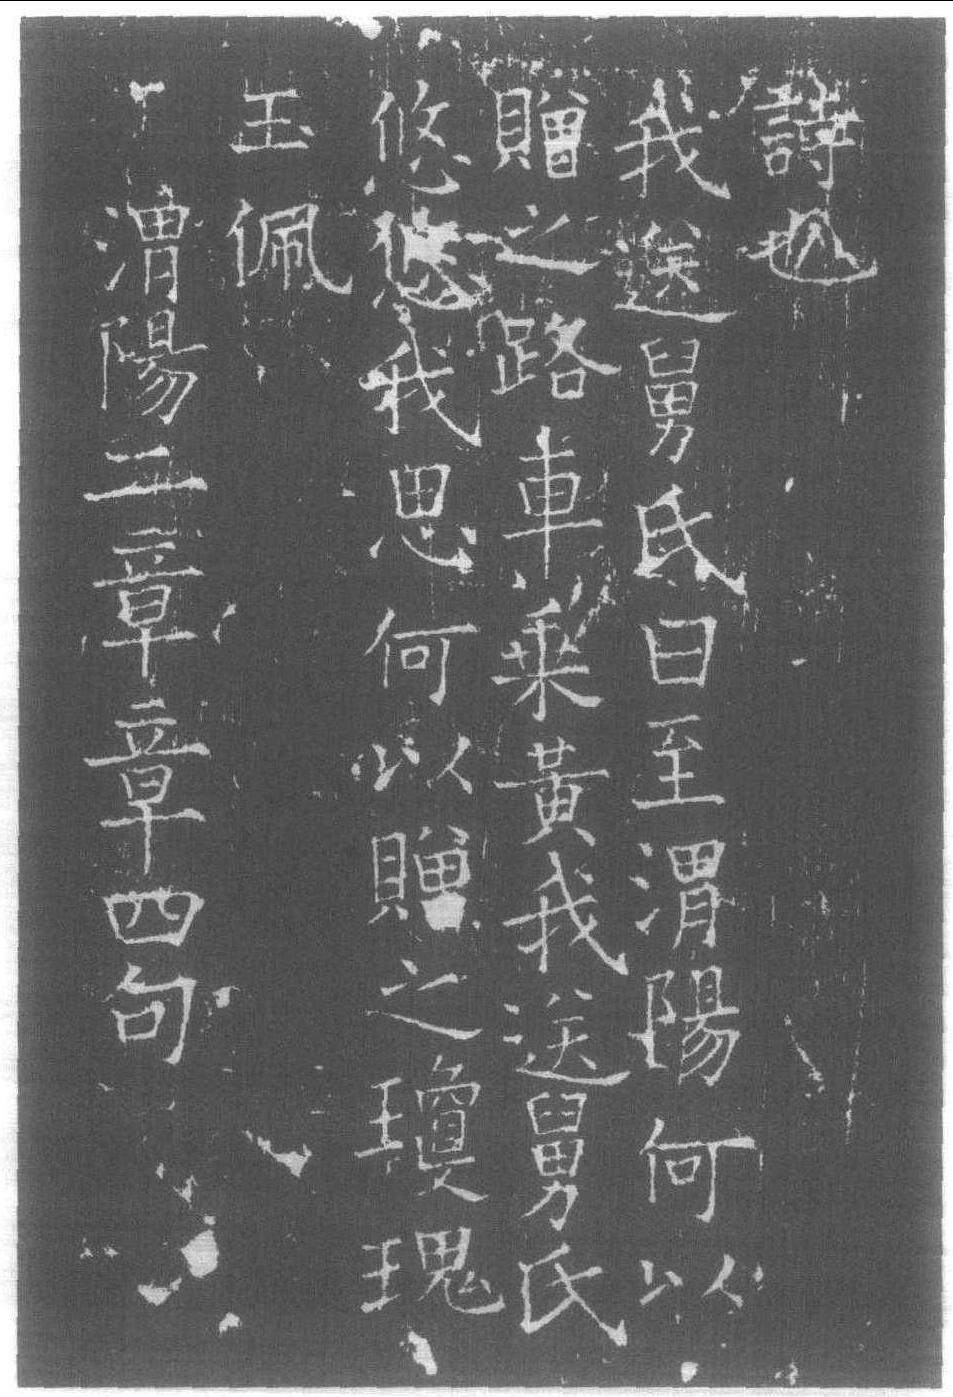 詩也
我送舅氏曰至渭陽何以
贈之路車乗黃我送舅氏
悠悠我思何以贈之瓊瑰
玉佩
渭陽二章章四句